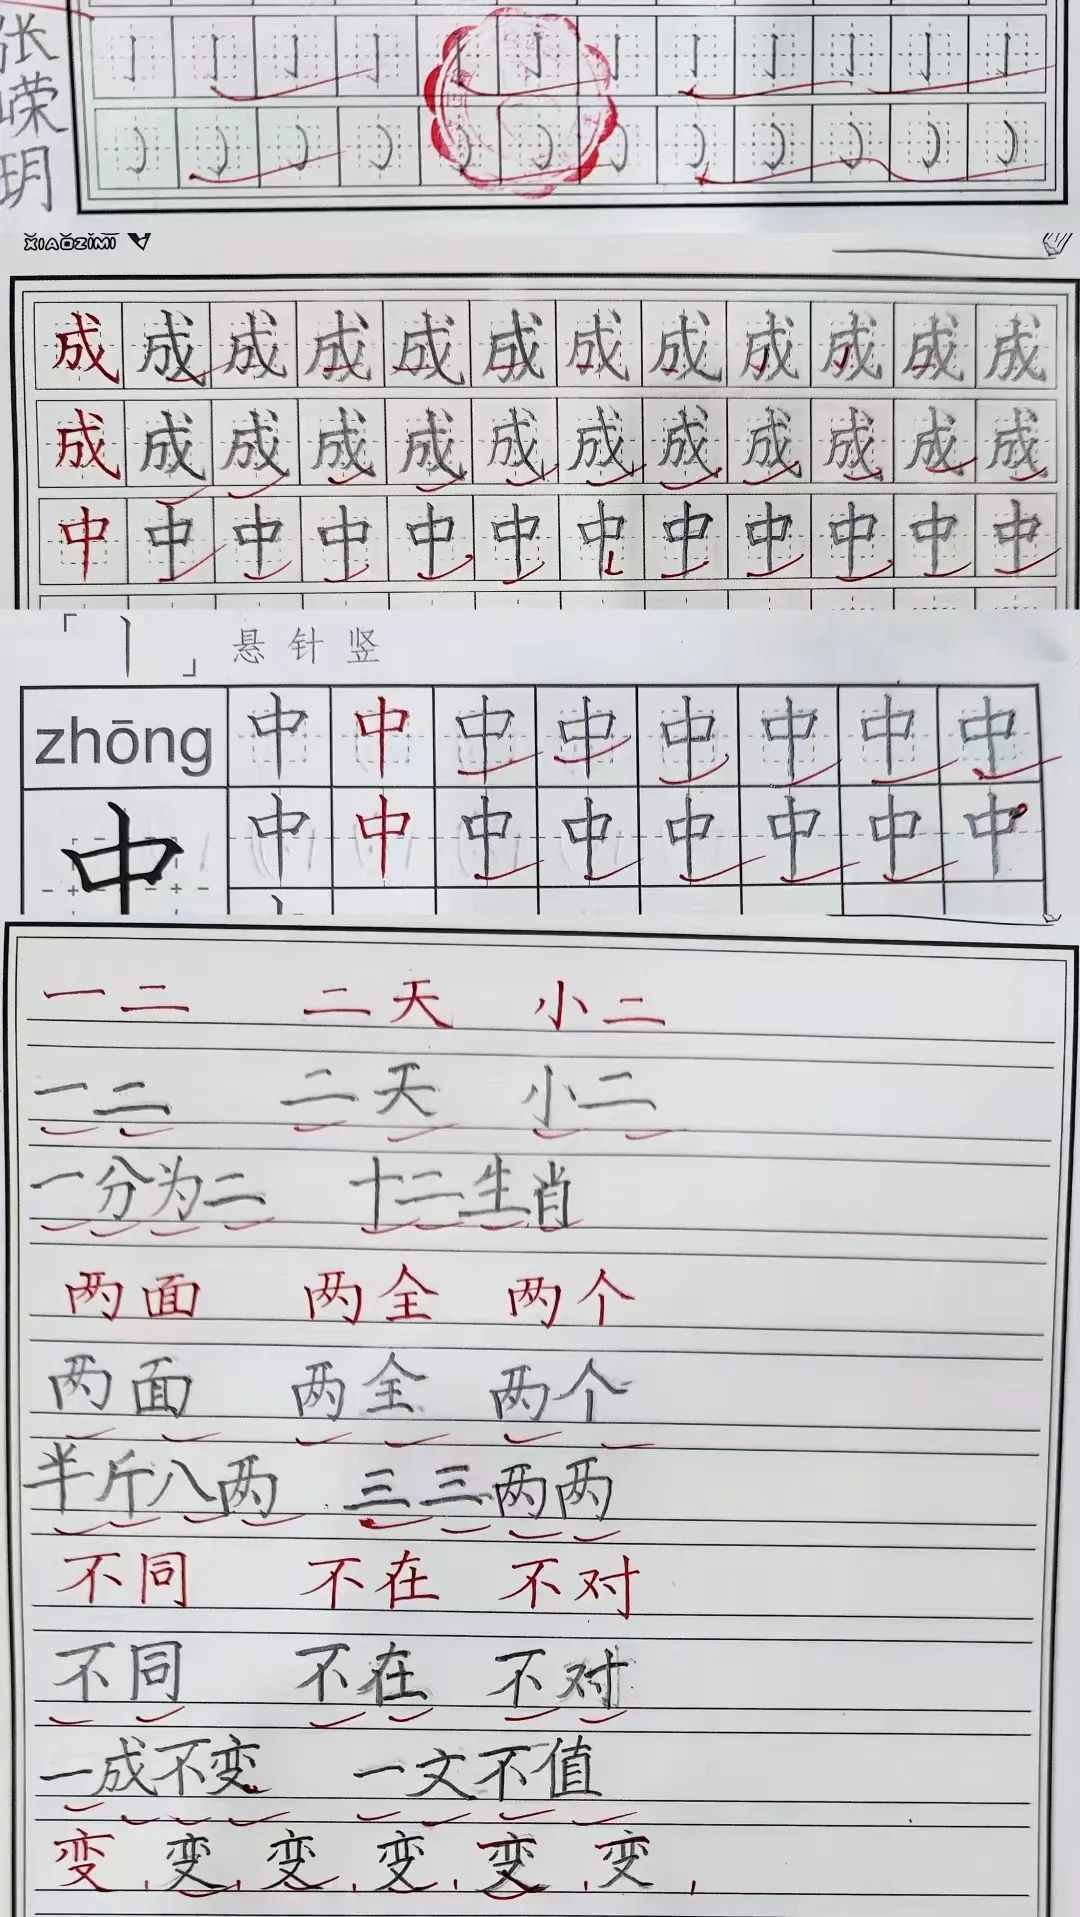 张嵘玥
XIAOZIMI
成成成成成成成成成成成成
成成成成成成成成成成成成
中中中中中中中中中中中中
「丨」悬针竖
zhōng 中中中中中中中中
中 中中中中中中中中
一二 二天 小二
一二 二天 小二
一分为二 十二生肖
两面 两全 两个
两面 两全 两个
半斤八两 三三两两
不同 不在 不对
不同 不在 不对
一成不变 一文不值
变变变变变变